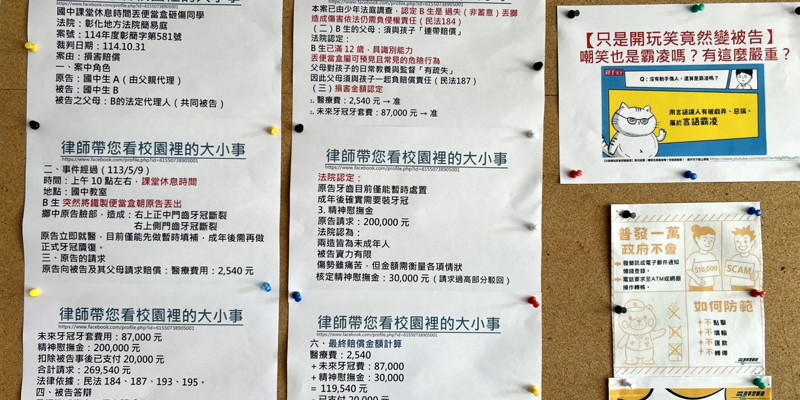 國中課堂休息時間丟便當盒砸傷同學
法院：彰化地方法院簡易庭
案號：114年度彰簡字第581號
裁判日期：114.10.31
案由：損害賠償
一、案中角色
原告：國中生A（由父親代理）
被告：國中生B
被告之父母：B的法定代理人（共同被告）
律師帶您看校園裡的大小事
https://www.facebook.com/profile.php?id=61550738905001
二、事件經過（113/5/9）
時間：上午10點左右，課堂休息時間
地點：國中教室
B生 突然將鐵製便當盒朝原告丟出
擲中原告臉部，造成：右上正中門齒牙冠斷裂
右上側門齒牙冠斷裂
原告立即就醫，目前僅能先做暫時填補，成年後需再做
正式牙冠贗復。
三、原告的請求
原告向被告及其父母請求賠償：醫療費用：2,540元
律師帶您看校園裡的大小事
https://www.facebook.com/profile.php?id=61550738905001
未來牙冠牙套費用：87,000元
精神慰撫金：200,000元
扣除被告事後已支付20,000元
合計請求：269,540元
法律依據：民法184、187、193、195。
四、被告答辯
本案已由少年法庭調查，認定B生是過失（非蓄意）丟擲
造成傷害依法仍需負侵權責任（民法184）
（二）B生的父母：須與孩子「連帶賠償」
法院認定：
B生已滿12歲，具識別能力
丟便當盒屬可預見且常見的危險行為
父母對孩子的日常教養與監督「有疏失」
因此父母須與孩子一起負賠償責任（民法187）
（三）損害金額認定
1. 醫療費：2,540元→准
2. 未來牙冠牙套費：87,000元→准
律師帶您看校園裡的大小事
https://www.facebook.com/profile.php?id=61550738905001
法院認定：
原告牙齒目前僅能暫時處置
成年後確實需要裝牙冠
3. 精神慰撫金
原告請求：200,000元
法院認為：
兩造皆為未成年人
被告實力有限
傷勢雖痛苦，但金額需衡量各項情狀
核定精神慰撫金：30,000元（請求過高部分駁回）
律師帶您看校園裡的大小事
https://www.facebook.com/profile.php?id=61550738905001
六、最終賠償金額計算
醫療費：2,540
+未來牙冠費：87,000
+精神慰撫金：30,000
= 119,540元
【只是開玩笑竟然變被告】
嘲笑也是霸凌嗎？有這麼嚴重？
Q：沒有動手傷人，還算是霸凌嗎？
用言語讓人有被戲弄、惡搞，
屬於言語霸凌
普發一萬
政府不會
發簡訊或電子郵件通知
領錢登錄。
電話要求至ATM或網銀
操作轉帳。
$10,000
SCAM
如何防範
不點擊
不填輸
不匯款
不轉傳